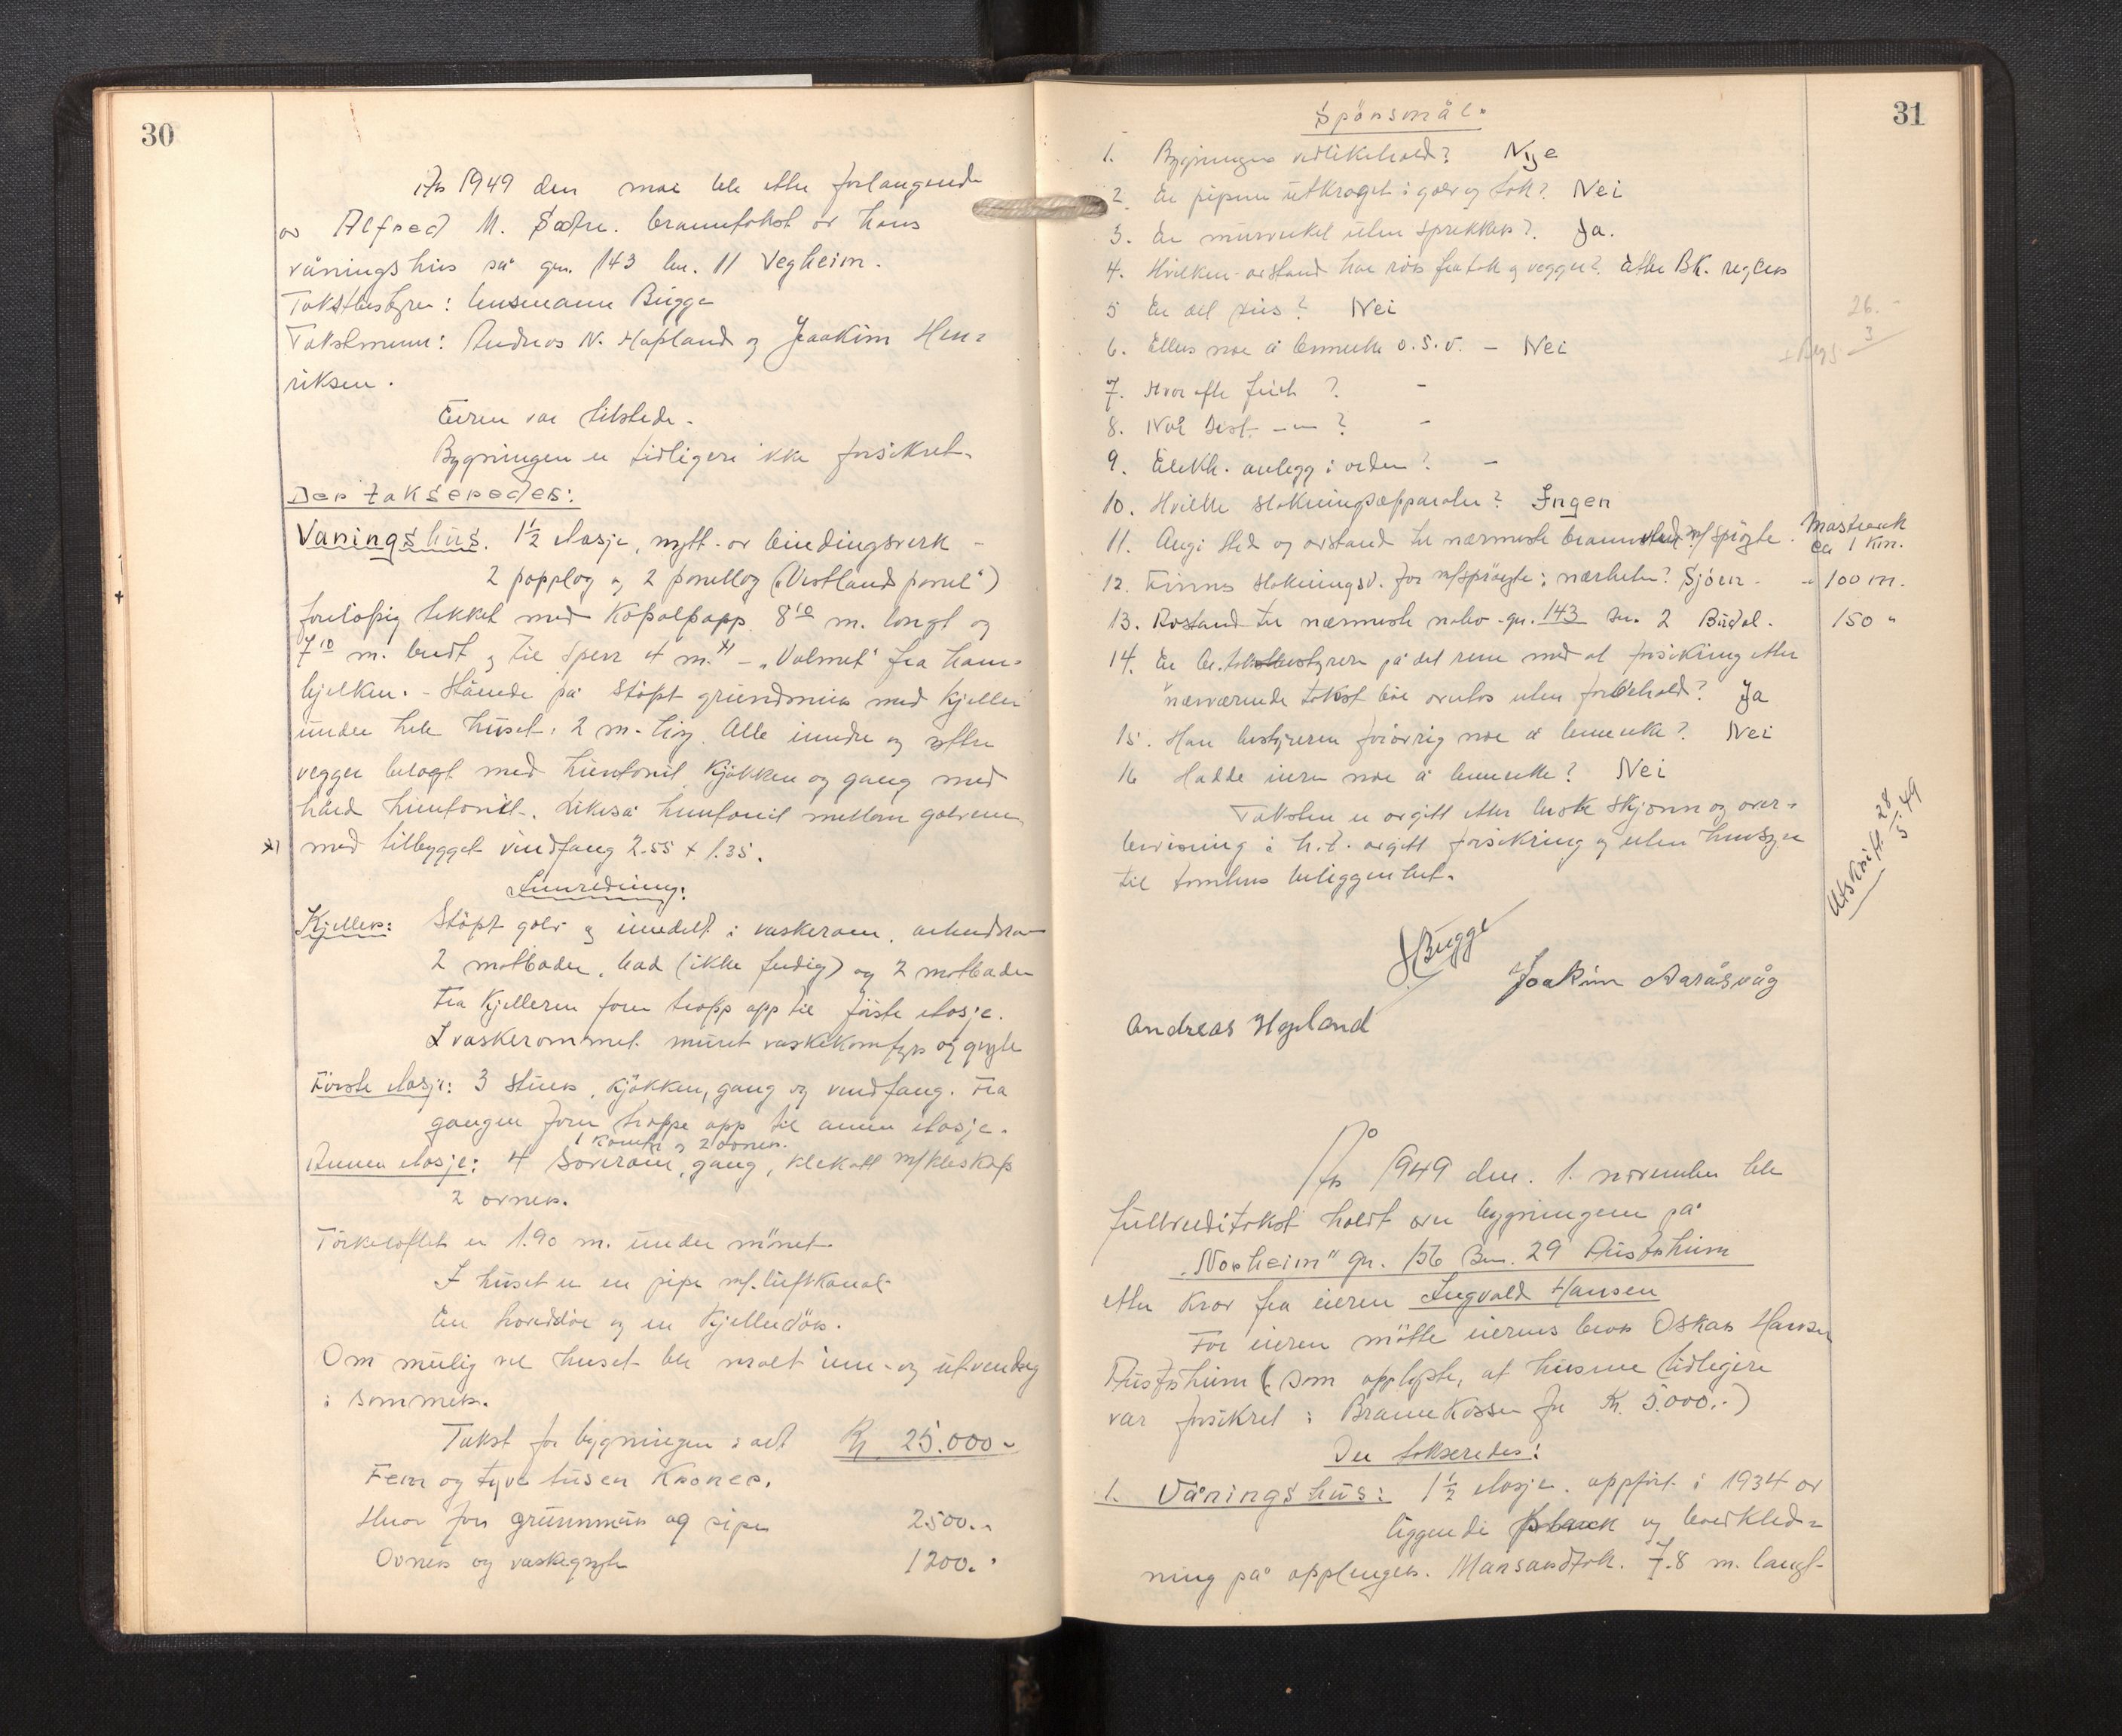 30
År 1949 den mai ble etter forlangende
av Alfred M. Sætre. branntakst av hans
våningshus på gn. 143 bn. 11 Vegheim.
Takstbestyrer: lensmann Bugge
Takstmenn: Andreas N. Hopland og Joakim Hen=
riksen.
Eieren var tilstede.
Bygningen er tidligere ikke forsikret.
Der taksepedes:
Vaningshus. 1½ etasje, nytt - av bindingsverk -
2 papplag og 2 panellag ("Vestlandspanel")
foreløpig tekket med Kopalpapp 8¹⁰ m. langt og
7¹⁰ m. bredt og til sperr 4 m. x) - "Valmet" fra han=
bjelken. - Stående på støpt grundmur med kjeller
under hele huset, 2 m. høy. Alle inndre og yttre
vegger belagt med huntonit kjøkken og gang med
hård huntonit. Likeså huntonit mellom golvene,
x) med tilbygget vindfang 2.55 x 1.35.
Innredning:
Kjeller: Støpt golv og inndelt i vaskerom,
2 matboder, bad (ikke ferdig) og 2 matboder
Fra kjelleren fører trapp opp til første etasje.
I vaskerommet muret vaskekomfyr og gryte
Første etasje: 3 stuer, kjøkken, gang og vindfang. Fra
gangen fører trapp opp til annen etasje.
1 komfyr og 2 ovner.
Annen etasje: 4 soverom, gang, klekott m/kleskap
2 ovner.
Tørkeloftet er 1.90 m. under mønet
I huset er en pipe m/. luftkanal
En hoveddør og en kjellerdør.
Om mulig vil huset ble malt inn- og utvendig
i sommer.
Takst for bygningen i alt Kr. 25.000.-
Fem og tyve tusen Kroner.
Herav for grunnmur og pipe 2500.-
Ovner og vaskegryte 1200.-
31
Spørsmål.
1. Bygningens vedlikehold? Nye
2. Er pipene utkraget i golv og tak? Nei
3. Er murverket uten sprekker? Ja.
4. Hvilken avstand har rør fra tak og vegger? Etter BK. regler
5 Er det pus? Nei
26.-
6. Ellers noe å bemerke o.s.v. - Nei
3
7. Hvor ofte feiet? -
8. Når sist -"- ? -
9. Elektr. anlegg i orden? -
10. Hvilke slokningsapparater? Ingen
11. Angi sted og avstand til nærmeste brannsted m/sprøyte. Mastrevik ca 1 km.
12. Finnes slokningsv. for m/sprøyte i nærheten? Sjøen - - 100 m.
13. Avstand til nærmeste nabo - gn. 143 bn. 2 Budal. 150 "
14. Er br. takstbestyreren på det rene med at forsikring etter
nærværende takst bør avsluttes uten forbehold? Ja
15. Har bestyreren forøvrig noe å bemerke? Nei
16 Hadde eieren noe å bemerke? Nei
Taksten er avgitt etter beste skjønn og over=
bevisning i h.t. avgitt forsikring og uten hensyn
til tomtens beliggenhet.
Utskrift 28/5-49
H Bugge
Joakim Aaråsvåg
Andreas Hopland
År 1949 den. 1. november ble
fullverditakst holdt over bygningene på
"Norheim" gn. 156 Bn. 29 Austrheim
etter krav fra eieren Ingvald Hansen
For eieren møtte eierens bror Oskar Hansen
Austrheim (som opplyste, at husene tidligere
var forsikret i Brannkassen for Kr. 5.000.-)
Der takseredes:
1. Våningshus: 1½ etasje. oppført i 1934 av
liggende plank og bordkled=
ning på opplenger. Mansardtak. 7.8 m. langt